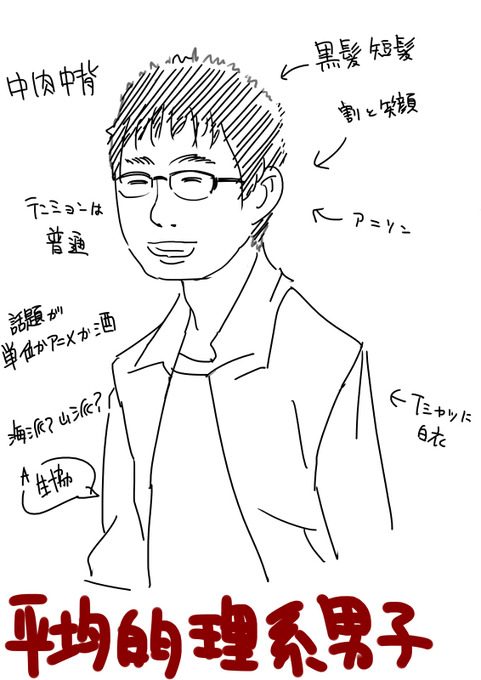 中肉中背
黒髪短髪
割と笑顔
テンションは
普通
アニソン
話題が
単位かアニメか酒
Tシャツに
白衣
海派？山派？
A
生協
平均的理系男子